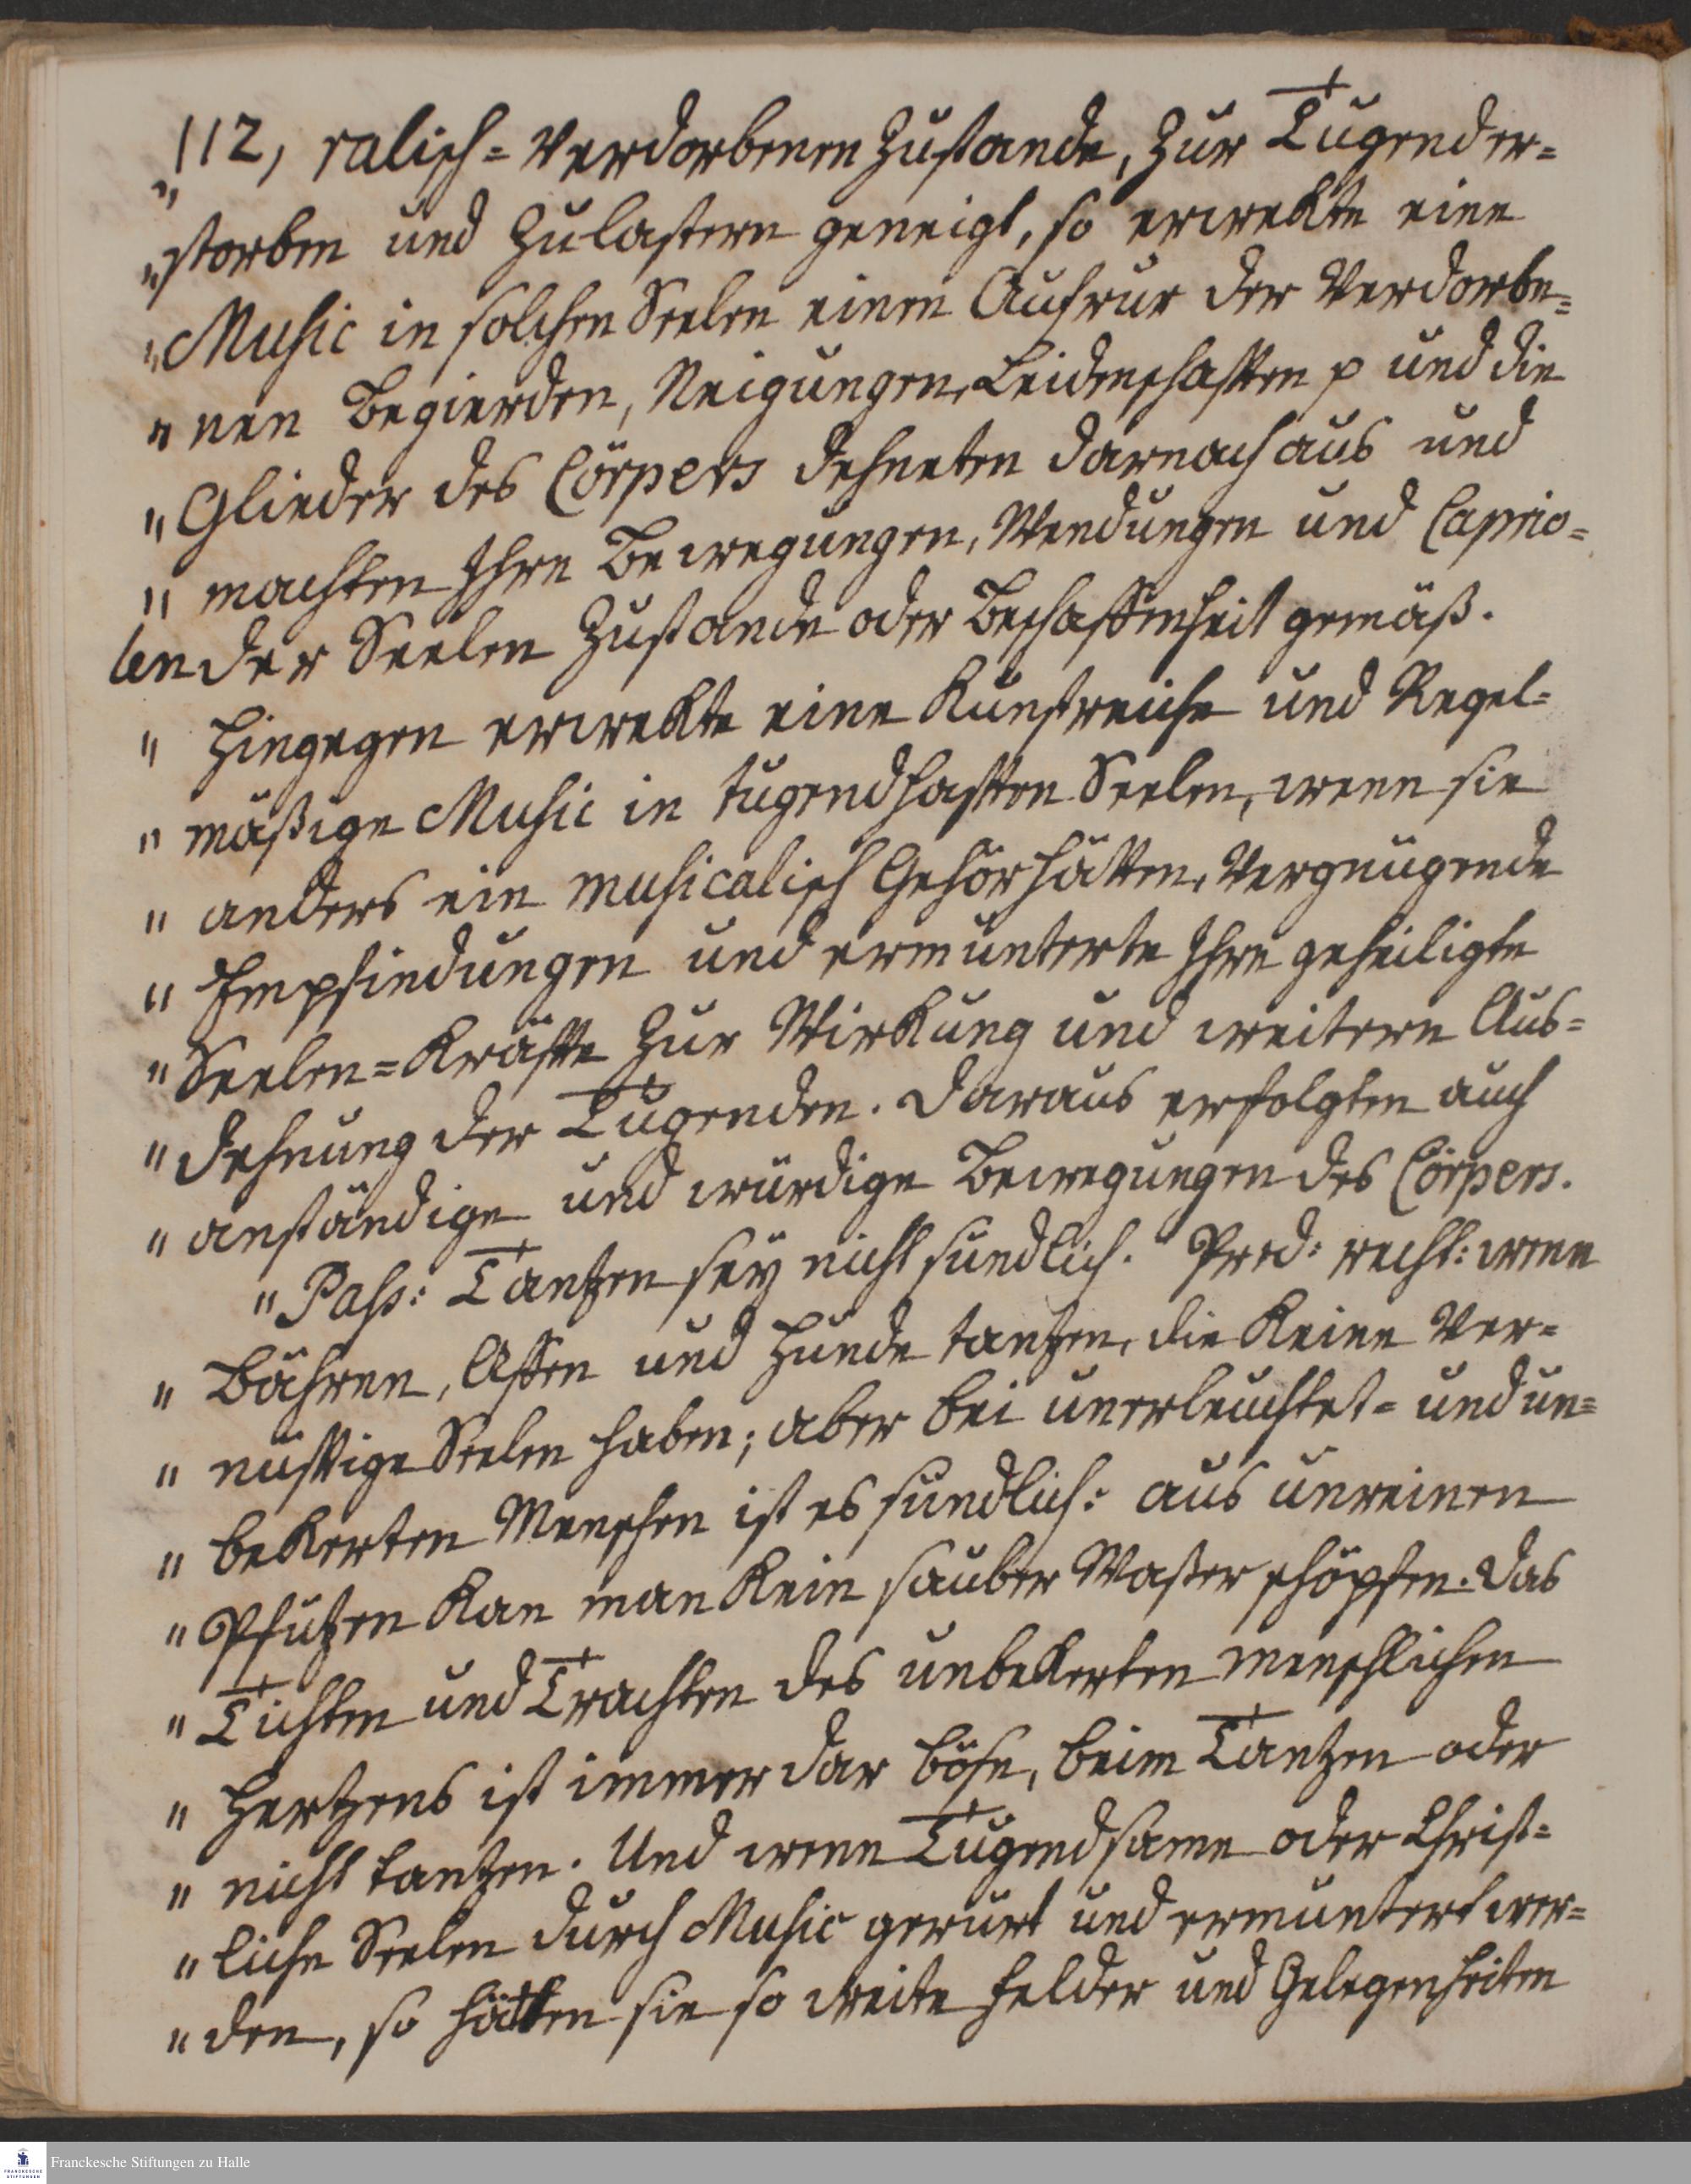 112, ralisch-verdorbenen Zustande, zur Tugend er=
"storben und zu lastern geneigt, so erwekte eine
"Music in solchen Seelen einen Aufrur der verdorbe=
"nen Begierden, Neigungen, Leidenschafften p und die
"Glieder des Cörpers dehneten darnach aus und
"machten Ihre Bewegungen, Wendungen und Caprio=
len der Seelen Zustande oder Beschaffenheit gemäß.
"Hingegen erwekte eine Kunstreiche und Regel=
"mäßige Music in tugendhafften Seelen, wenn sie
"anders ein musicalisch Gehör hätten, Vergnügende
"Empfindungen und ermunterte Ihre geheiligte
"Seelen=Kräffte zur Wirkung und weitern Aus=
"dehnung der Tugenden. Daraus erfolgten auch
"anständige und würdige Bewegungen des Cörpers.
"Pass: Tantzen sey nicht sündlich. Pred: recht: wenn
"Bähren, Affen und Hunde tantzen, die Keine Ver=
"nüfftige Seelen haben; aber bei unerleuchtet- und un=
"bekerten Menschen ist es sündlich: aus unreinen
"Pfützen Kan man Kein sauber Waßer schöpfen. Das
"Tichten und Trachten des unbekerten menschlichen
"Hertzens ist immerdar böse, beim Tantzen oder
"nicht tantzen. Und wenn Tugendsame oder Christ=
"liche Seelen durch Music gerürt und ermuntert wer=
"den, so hätten sie so weite Felder und Gelegenheiten
Franckesche Stiftungen zu Halle
FRANCKESCHE STIFTUNGEN